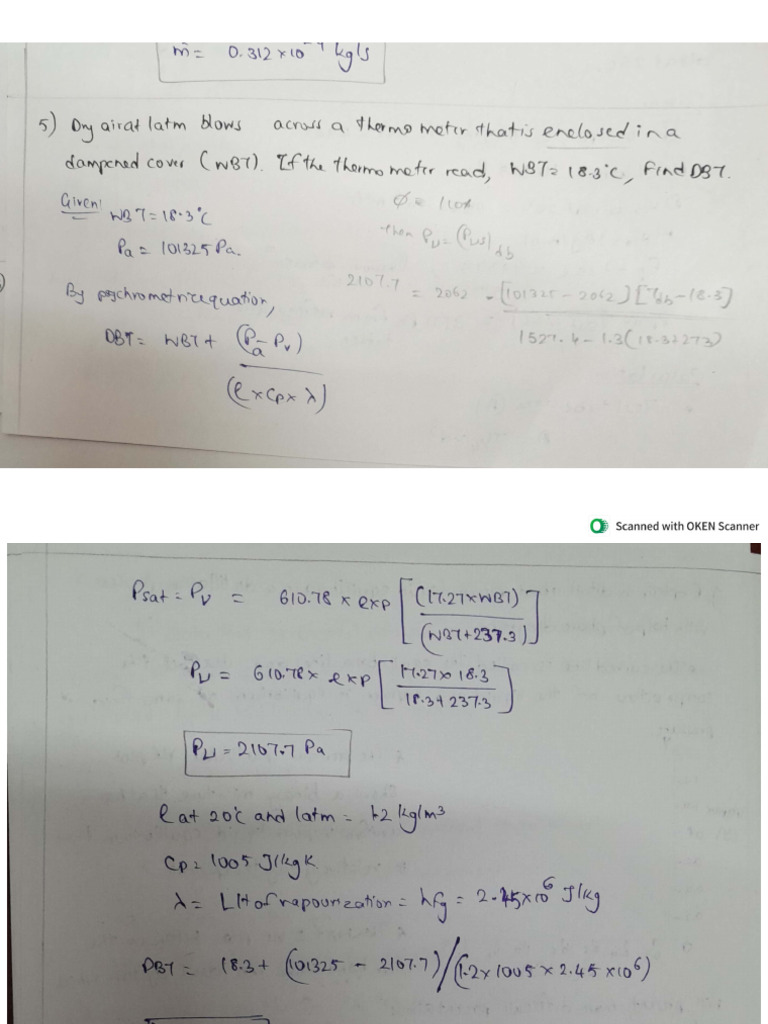 ṁ = 0.312×10⁻⁴ kg/s
5) Dry air at 1atm blows across a thermometer that is enclosed in a
dampened cover (WBT). If the thermometer read, WBT = 18.3°C, Find DBT.
Given:
WBT = 18.3°C
Pa = 101325 Pa.
By psychrometric equation,
DBT = WBT + (Pa - Pv)
(ρ × Cp × λ)
then Pv = (Pvs)
2107.7 = 2062 - (101325 - 2062) [Tdb - 18.3]
1527.4 - 1.3(18.3+273)
Scanned with OKEN Scanner
Psat = Pv = 610.78 × exp [(17.27×WBT)
(WBT+237.3)]
Pv = 610.78 × exp [17.27× 18.3
18.3+237.3]
Pv = 2107.7 Pa
ρ at 20°C and 1atm = 1.2 kg/m³
Cp = 1005 J/kgK
λ = LH of vapourization = hfg = 2.45×10⁶ J/kg
DBT = 18.3 + (101325 - 2107.7)/(1.2×1005×2.45×10⁶)